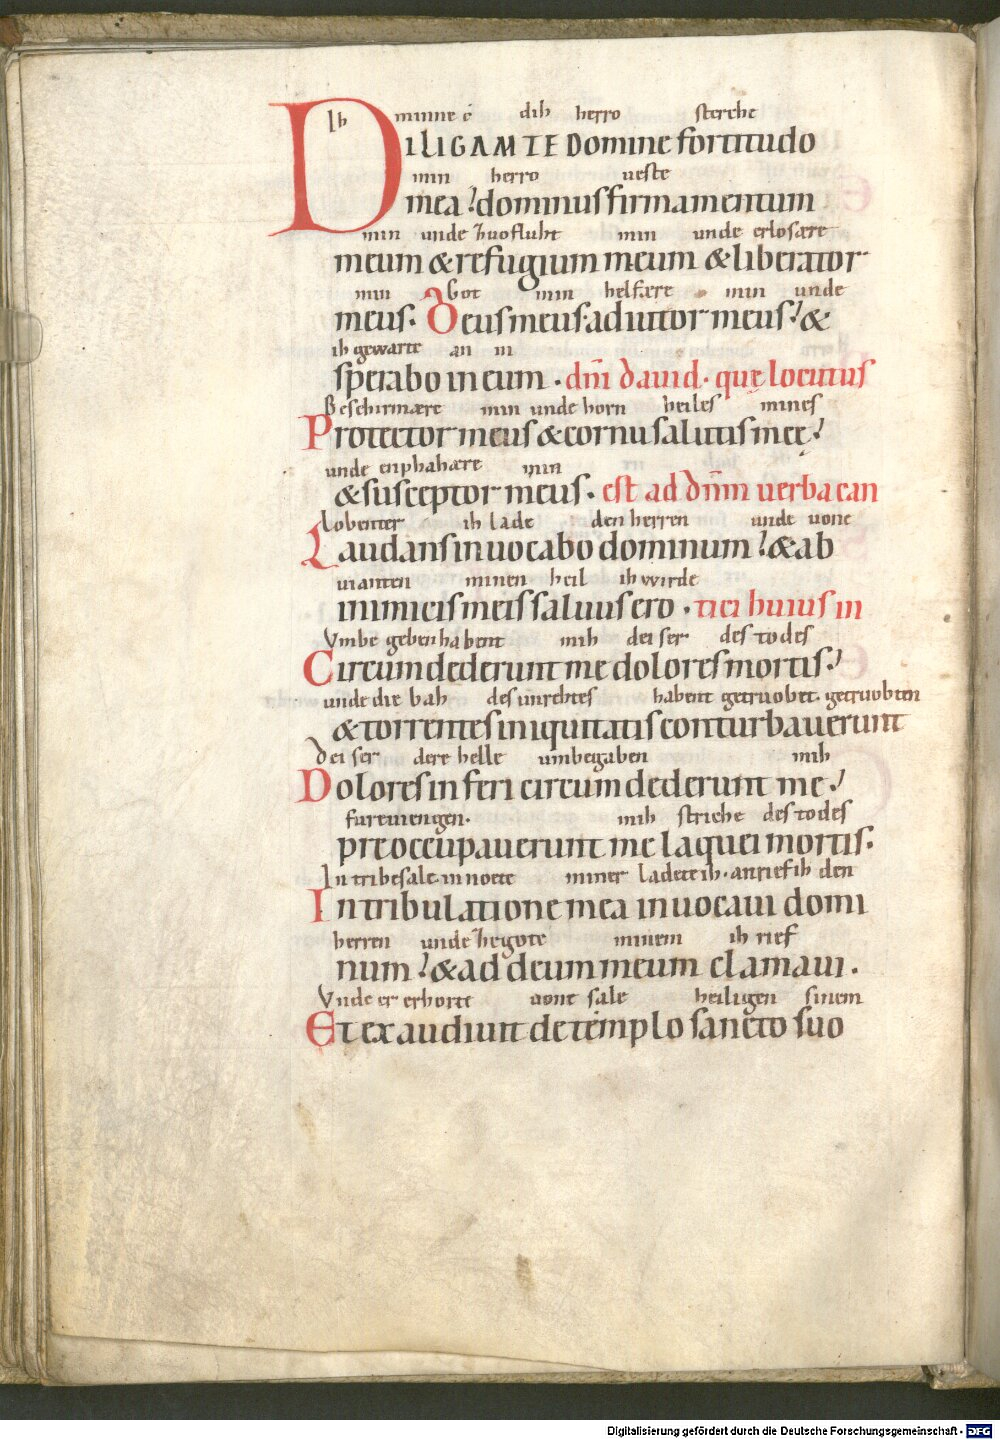 Ih minne é dih herro sterche
DILIGAM TE Domine fortitudo
min herro ueste
mea? dominus firmamentum
min unde zuofluht min unde erlosære
meum & refugium meum & liberator
min Got min helfære min unde
meus. Deus meus adiutor meus? &
ih gewarte an in
sperabo in eum . dni dauid. quę locutus
Beschirmære min unde horn heiles mines
Protector meus & cornu salutis meę?
unde enphahære min
& susceptor meus. est ad dnm uerba can
Lobenter ih lade den herren unde uone
Laudans inuocabo dominum? & ab
uianten minen heil ih wirde
inimicis meis saluus ero . tici huius in
Vmbe geben habent mih dei ser des todes
Circumdederunt me dolores mortis?
unde die bah des unrehtes habent getruobet. getruobten
& torrentes iniquitatis conturbauerunt
Dei ser dere helle umbegaben mih
Dolores inferi circumdederunt me?
fureuiengen. mih striche des todes
preoccupauerunt me laquei mortis.
In tribesale. in noete miner ladete ih. anrief ih den
In tribulatione mea inuocaui domi
herren unde zegote minem ih rief
num? & ad deum meum clamaui.
Vnde er erhorte uone sale heiligen sinem
Et exaudiuit de templo sancto suo
Digitalisierung gefördert durch die Deutsche Forschungsgemeinschaft - DFG